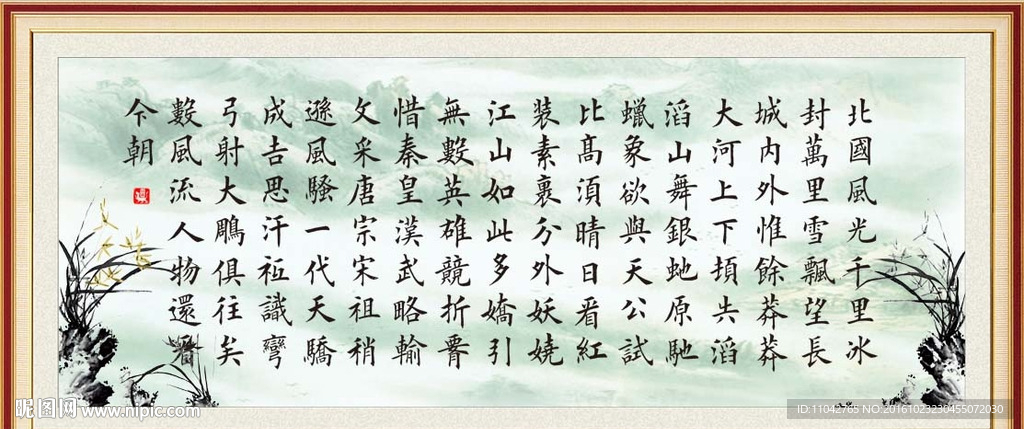 北國風光千里冰
封萬里雪飄望長
城内外惟餘莽莽
大河上下頓失滔
滔山舞銀虵原馳
蠟象欲與天公試
比髙須晴日看紅
装素裹分外妖嬈
江山如此多嬌引
無數英雄競折腰
惜秦皇漢武略輸
文采唐宗宋祖稍
遜風騷一代天驕
成吉思汗祗識彎
弓射大鵰俱往矣
數風流人物還看
今朝
昵图网 www.nipic.com
ID:11042765 NO:20161023230455072030